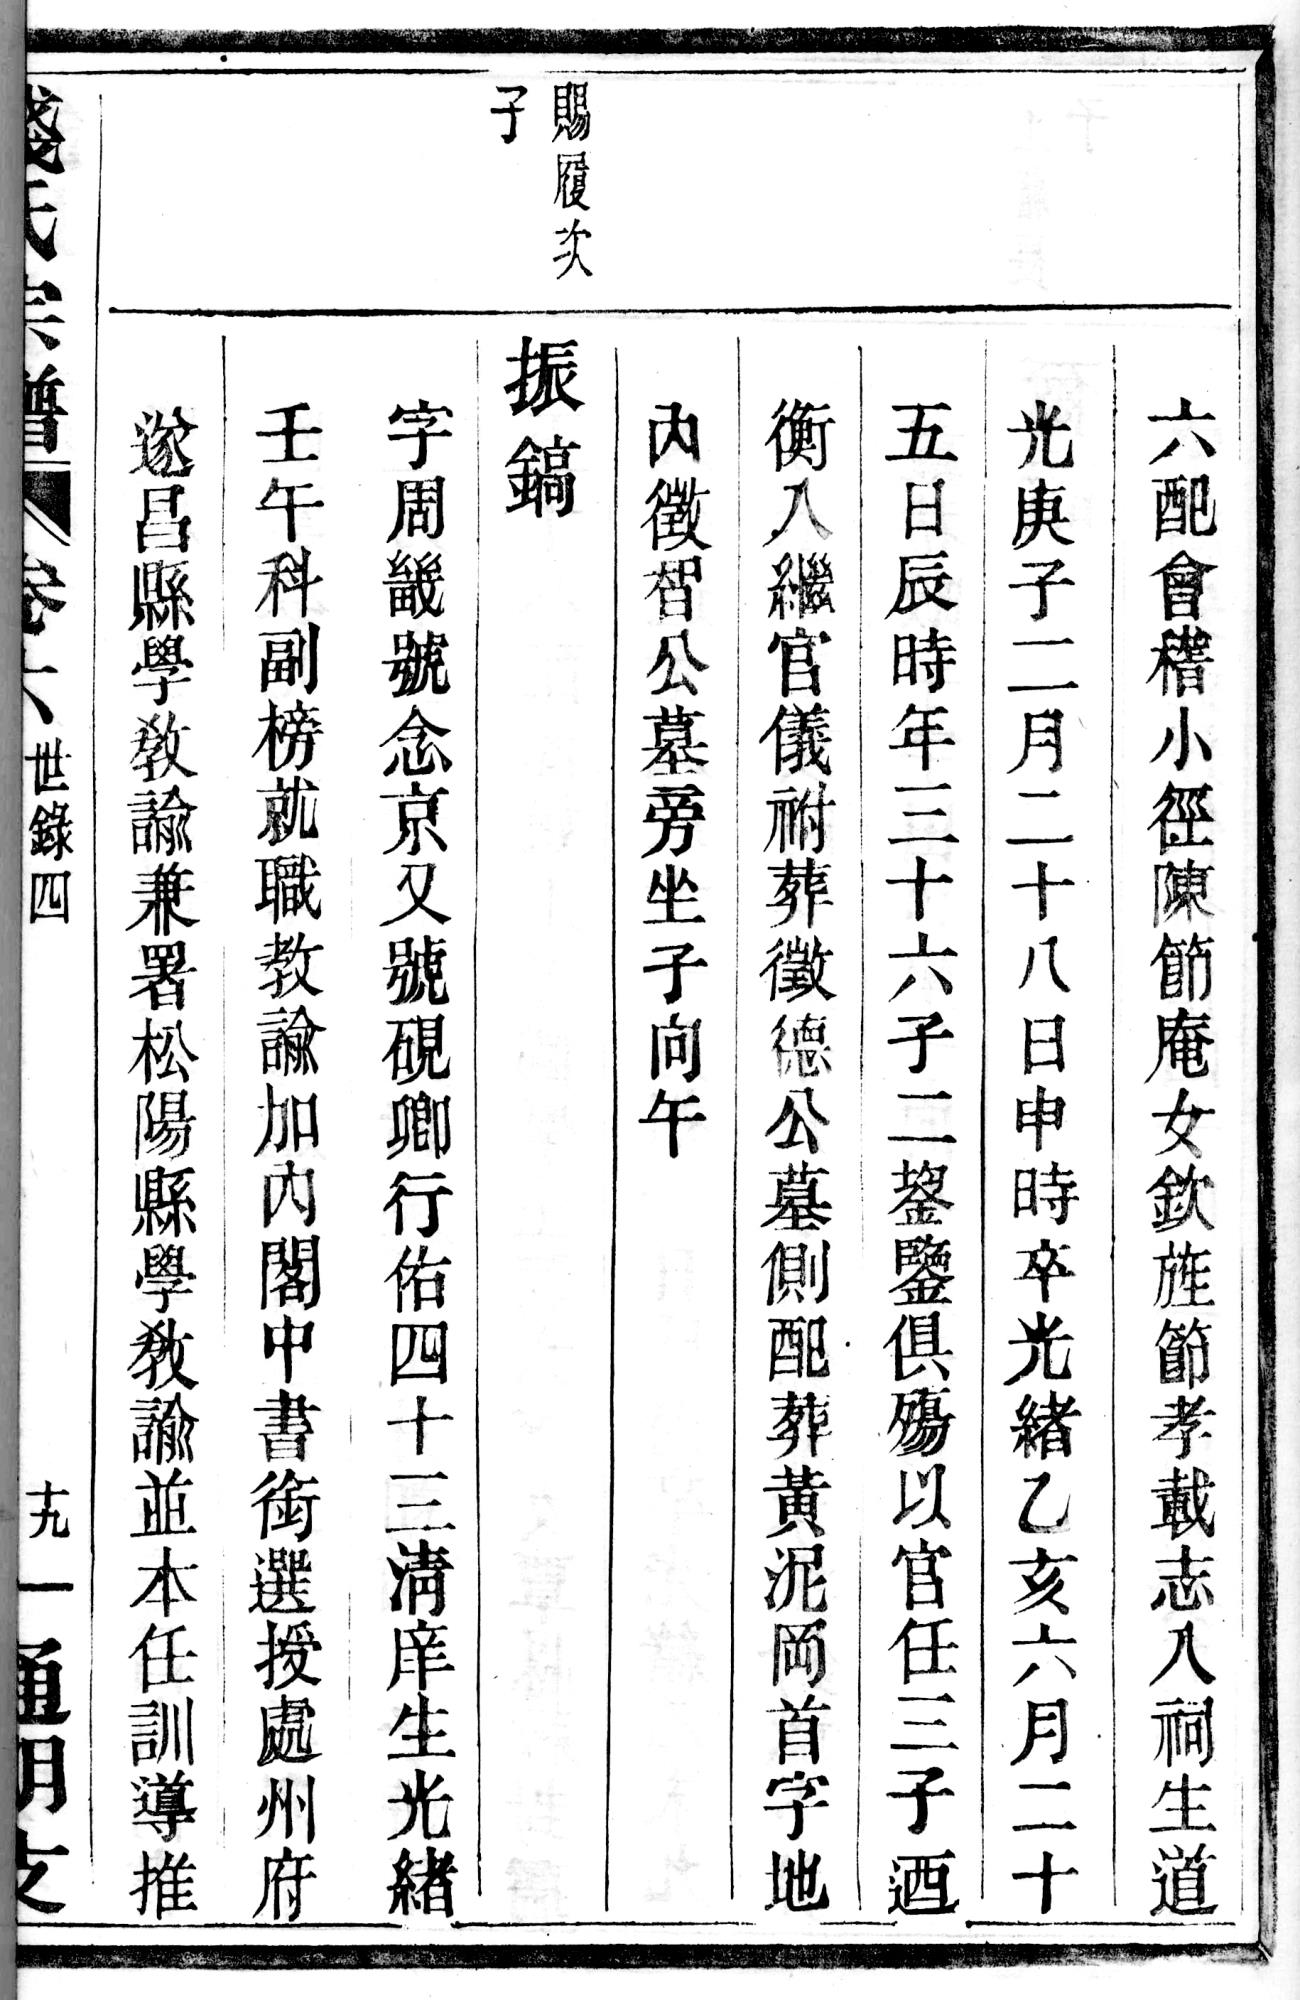 六配會稽小徑陳節庵女欽旌節孝載志入祠生道
光庚子二月二十八日申時卒光緒乙亥六月二十
五日辰時年三十六子二鋆鑒俱殤以官任三子迺
衡入繼官儀祔葬徵德公墓側配葬黃泥岡首字地
內徵智公墓旁坐子向午
賜履次
子
振鎬
字周畿號念京又號硯卿行佑四十三清庠生光緒
壬午科副榜就職教諭加內閣中書銜選授處州府
遂昌縣學教諭兼署松陽縣學教諭並本任訓導推
錢氏宗譜 卷六 世錄四 十九 通明支